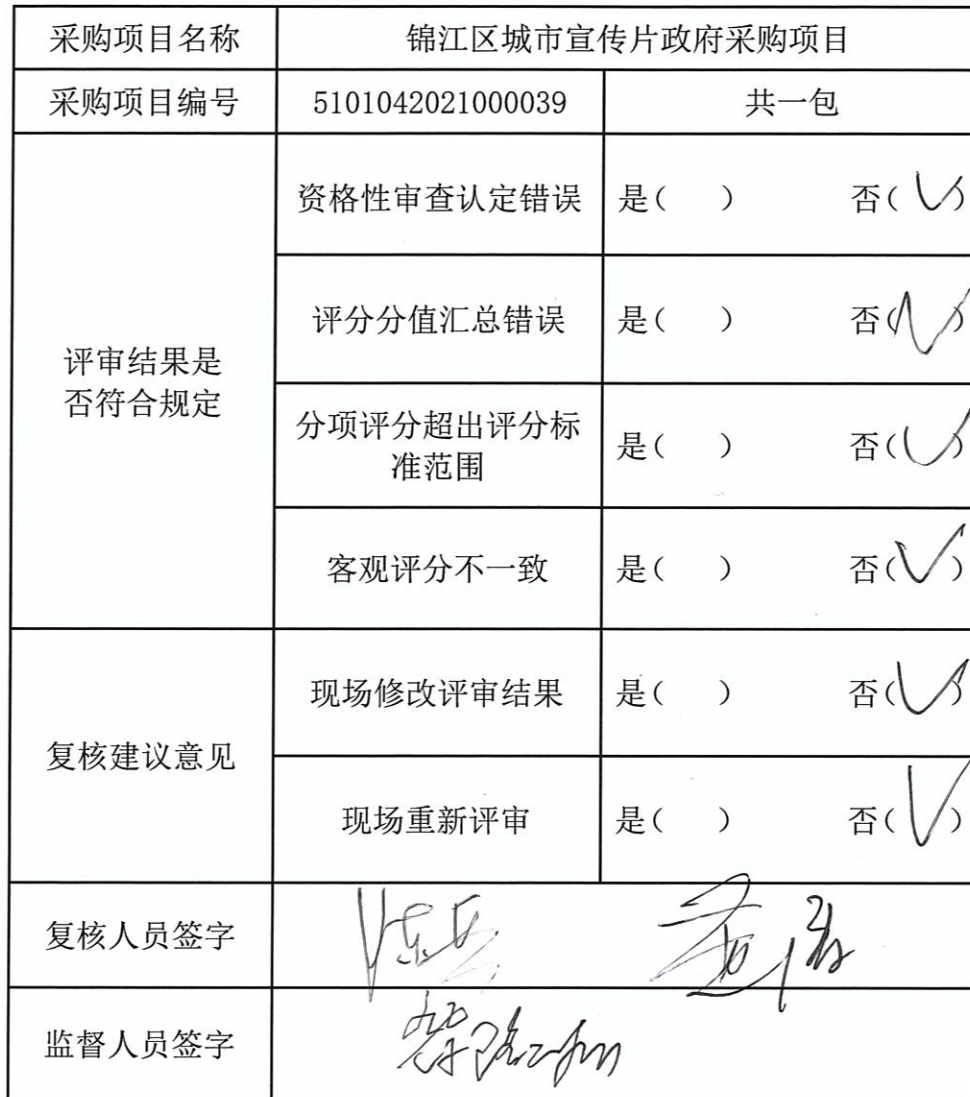 采购项目名称 锦江区城市宣传片政府采购项目
采购项目编号 5101042021000039 共一包
评审结果是
否符合规定
资格性审查认定错误 是(　) 否(√)
评分分值汇总错误 是(　) 否(√)
分项评分超出评分标
准范围 是(　) 否(√)
客观评分不一致 是(　) 否(√)
复核建议意见
现场修改评审结果 是(　) 否(√)
现场重新评审 是(　) 否(√)
复核人员签字
监督人员签字